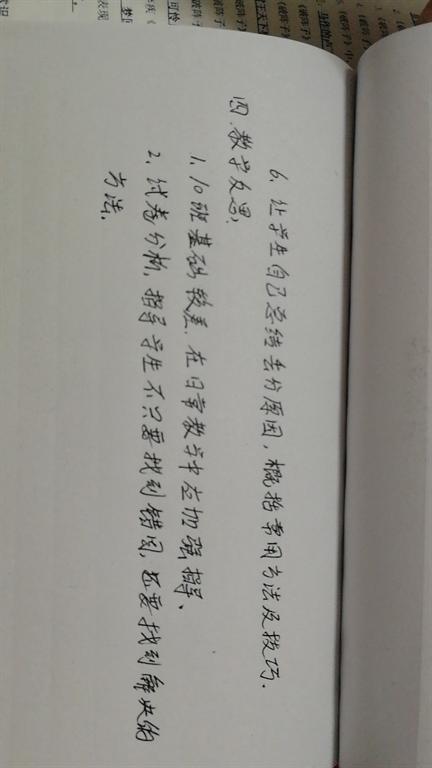 6、让学生自己总结丢分原因，概括常用方法及技巧.
四、教学反思，
1、10班基础较差，在日常教学中应加强指导、
2、试卷分析，指导学生不只要找到错因，还要找到解决的
方法.